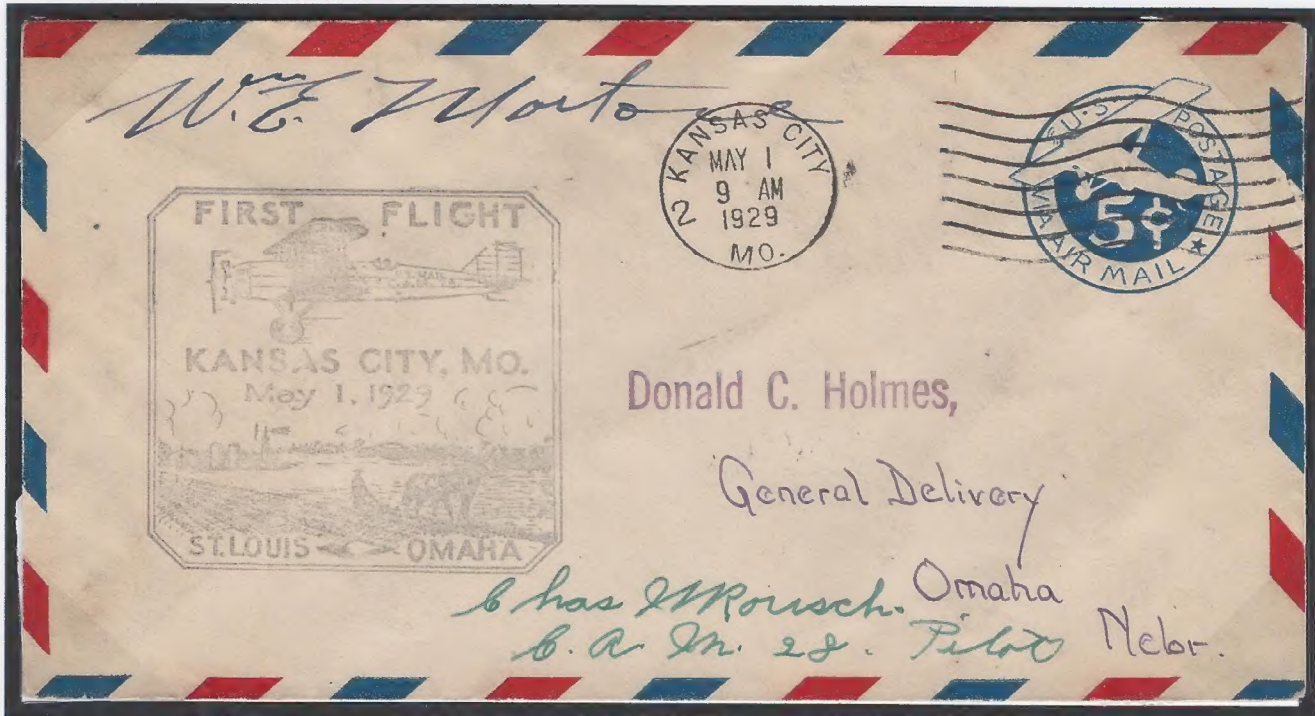 Wm. E. Morton
2 KANSAS CITY
MAY 1
9 AM
1929
MO.
U.S. POSTAGE
5¢
VIA AIR MAIL
FIRST FLIGHT
U.S. MAIL
KANSAS CITY, MO.
May 1, 1929
ST. LOUIS OMAHA
Donald C. Holmes,
General Delivery
Omaha
Nebr.
Chas
C. A. M. 28. Pilot